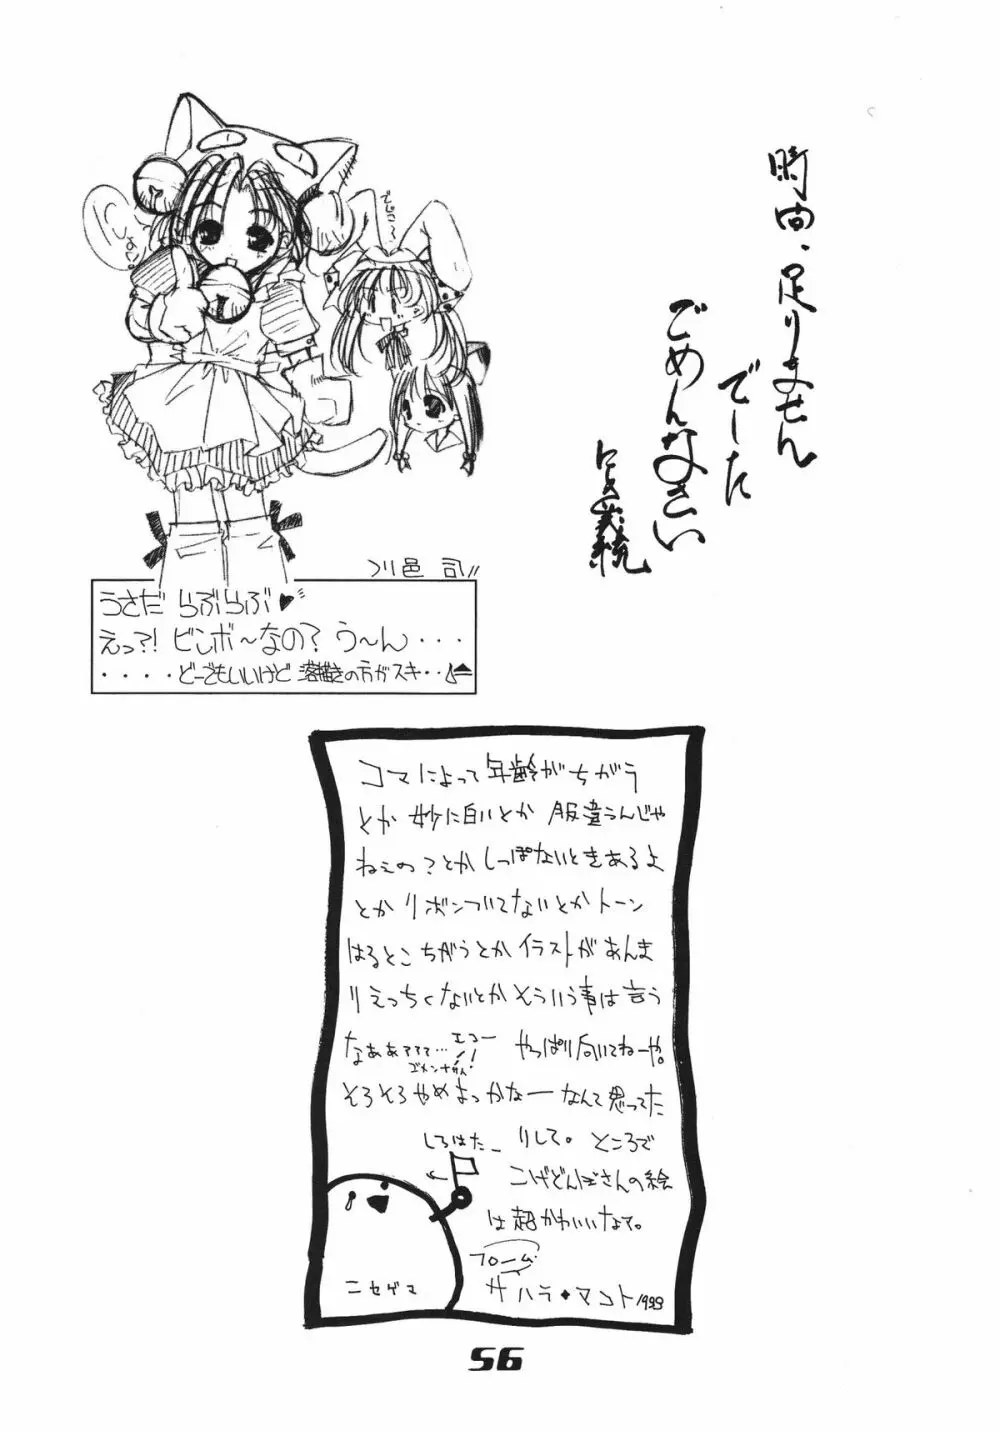 時間、足りません
でーた
ごめんなさい
しょぼーん
でじこ〜
川邑 司
うさだ らぶらぶ♥
えっ?! ビンボ〜なの? う〜ん・・・・
・・・・どーでもいいけど 落描きの方がスキ・・
コマによって年齢がちがう
とか 妙に白いとか 服違うんじゃ
ねぇの?とか しっぽないときあるよ
とか リボンついてないとか トーン
はるとこ ちがうとか イラストが あんま
りえっちくないとか そういう事は言う
なああァァァ… エコー やっぱり向いてねーや。
ゴメンナサイ!
そろそろやめよっかなー なんて思ってた
りして。 ところで
しろはたー
こげどんぼさんの絵
は超かわいいなぁ。
フローム
サハラ◆マコト 1999
ニセゲマ
56